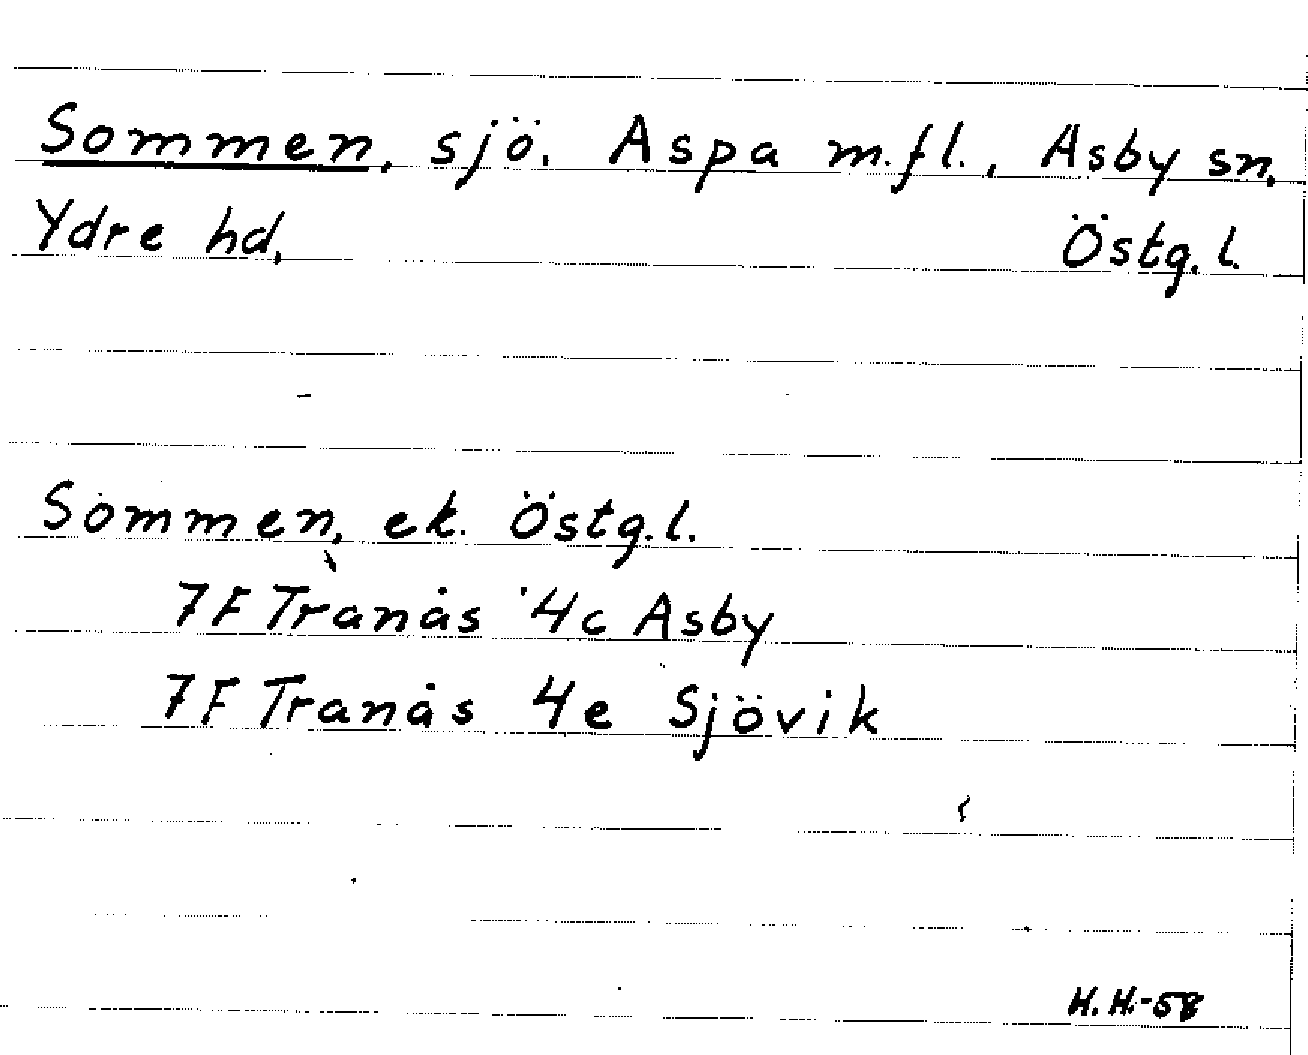 Sommen, sjö. Aspa m.fl., Asby sn.
Ydre hd, Östg.l.
Sommen, ek. Östg.l.
7F Tranås 4c Asby
7F Tranås 4e Sjövik
H.H.-58